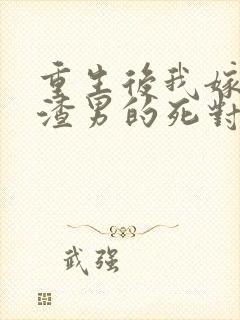 重生後我嫁
渣男的死對
武强